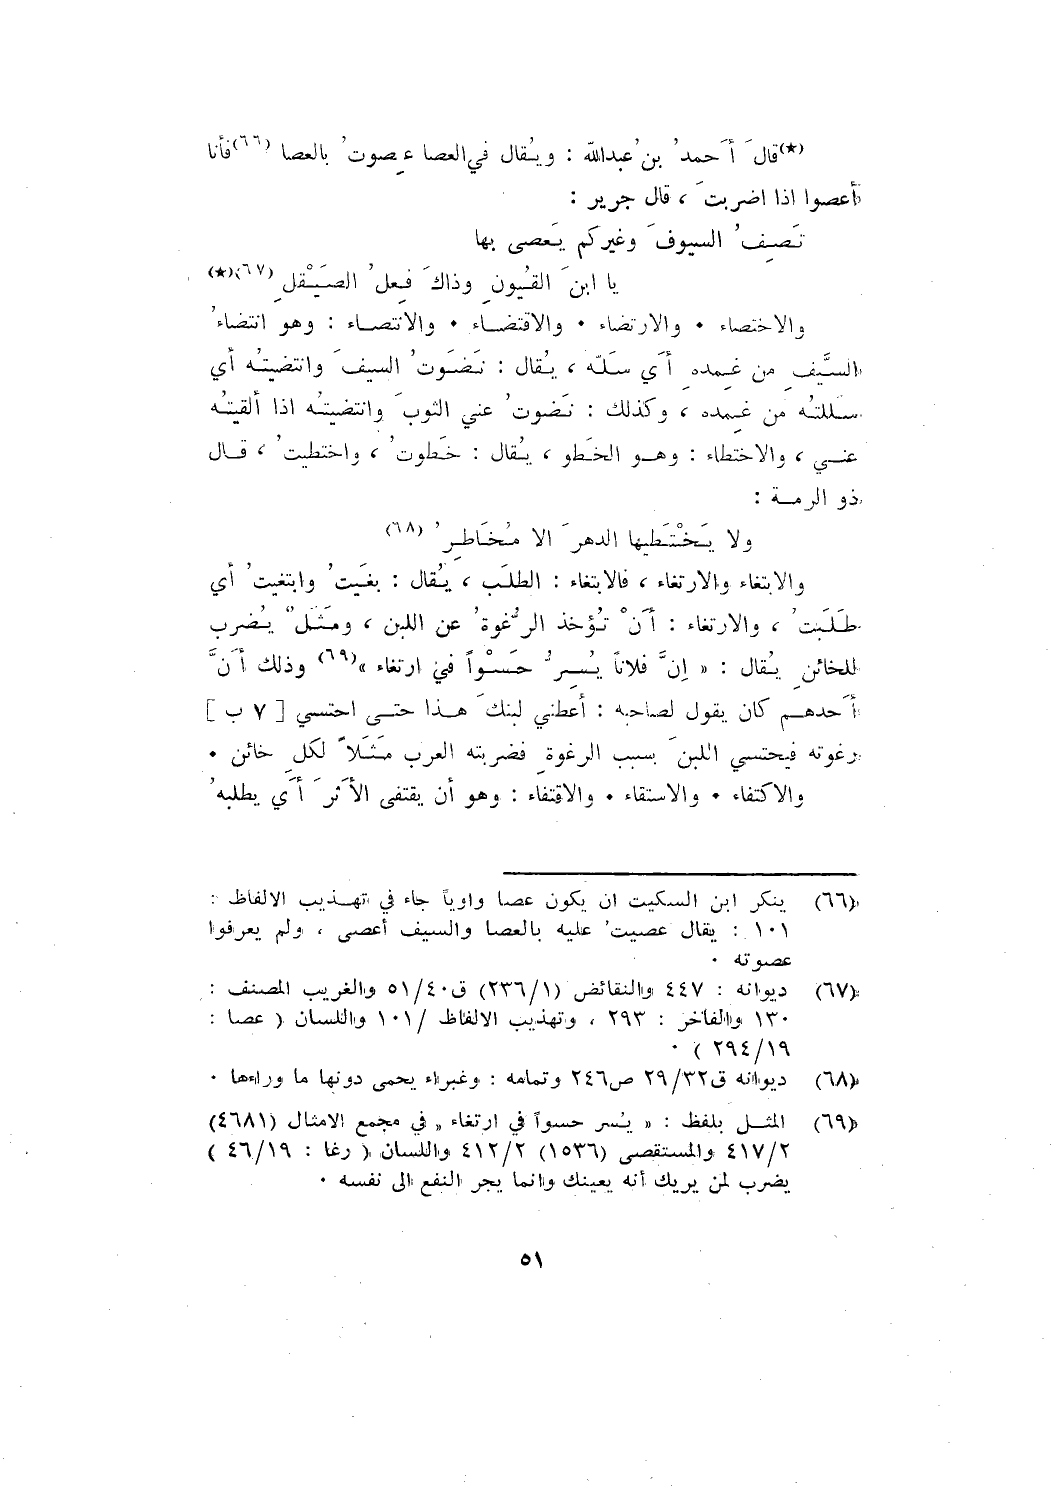 (★)قالَ أَحمدُ بنُ عبدالله : ويُقال في العصا عِصوتُ بالعصا (٦٦) فأنا
أعصوا اذا اضربتَ ، قال جرير :
تَصِفُ السيوفَ وغيركم يَعصى بها
يا ابنَ القُيونِ وذاكَ فِعلُ الصَيْقلِ (٦٧)(★)
والاختصاء · والارتضاء · والاقتضاء · والانتصاء : وهو انتضاءُ
السَّيفِ من غِمده أَي سَلّه ، يُقال : نَضَوتُ السيفَ وانتضيتُه أي
سللتُه من غِمده ، وكذلك : نَضوتُ عني الثوبَ وانتضيتُه اذا ألقيتُه
عني ، والاختطاء : وهو الخَطو ، يُقال : خَطوتُ ، واختطيتُ ، قال
ذو الرمة :
ولا يَخْتَطيها الدهرَ الا مُخَاطِرُ (٦٨)
والابتغاء والارتغاء ، فالابتغاء : الطلَب ، يُقال : بغَيتُ وابتغيتُ أي
طَلَبتُ ، والارتغاء : أَنْ تُؤخذ الرُّغوةُ عن اللبن ، ومَثَلٌ يُضرب
للخائنِ يُقال : « اِنَّ فلاناً يُسِرُّ حَسْواً في ارتغاء »(٦٩) وذلك أَنَّ
أَحدهم كان يقول لصاحبه : أعطني لبنكَ هذا حتى احتسي [ ٧ ب ]
رغوته فيحتسي اللبنَ بسبب الرغوةِ فضربته العرب مَثَلاً لكلِ خائن ·
والاكتفاء · والاستقاء · والاقتفاء : وهو أن يقتفى الأَثرَ أَي يطلبهُ
(٦٦) ينكر ابن السكيت ان يكون عصا واوياً جاء في تهذيب الالفاظ :
١٠١ : يقال عصيتُ عليه بالعصا والسيف أعصى ، ولم يعرفوا
عصوته ·
(٦٧) ديوانه : ٤٤٧ والنقائض (٢٣٦/١) ق٥١/٤٠ والغريب المصنف :
١٣٠ والفاخر : ٢٩٣ ، وتهذيب الالفاظ /١٠١ واللسان ( عصا :
٢٩٤/١٩ ) ·
(٦٨) ديوانه ق٢٩/٣٢ ص٢٤٦ وتمامه : وغبراء يحمى دونها ما وراءها ·
(٦٩) المثل بلفظ : « يُسر حسواً في ارتغاء » في مجمع الامثال (٤٦٨١)
٤١٧/٢ والمستقصى (١٥٣٦) ٤١٢/٢ واللسان ( رغا : ٤٦/١٩ )
يضرب لمن يريك أنه يعينك وانما يجر النفع الى نفسه ·
٥١